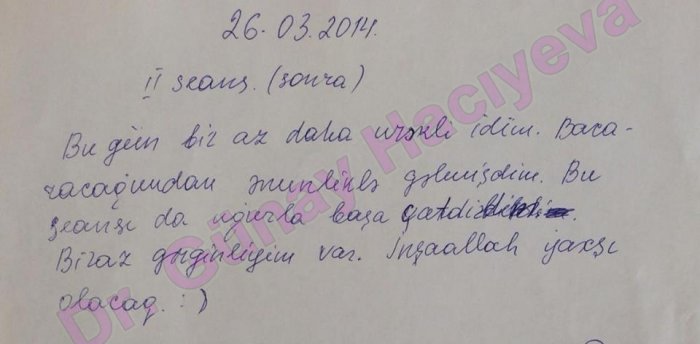 26.03.2014.
II seans. (sonra)
Bu gün bir az daha ürəkli idim. Baca-
racağımdan əminliklə gəlmişdim. Bu
seansı da uğurla başa çatdı
Biraz gərginliyim var. İnşaallah yaxşı
olacaq. :)
Dr. Günay Hacıyeva